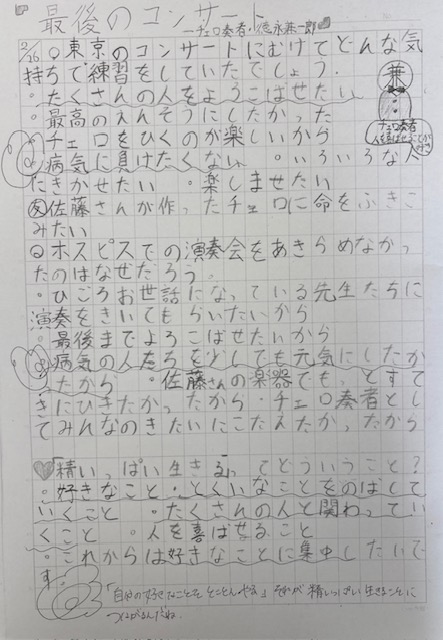 最後のコンサート
―チェロ奏者・徳永兼一郎―
2/16 ◎東京のコンサートにむけてどんな気
持ちで練習をしていたでしょう。
・たくさんの人をよろこばせたい
・最高のえんそうにしたかった
・チェロをひくのが楽しいから
・病気に負けたくない ・いろいろな人
にきかせたい ・楽しませたい
友佐藤さんが作ったチェロに命をふきこ
みたい
◎ホスピスでの演奏会をあきらめなかっ
たのはなぜだろう。
・ひごろお世話になっている先生たちに
演奏をきいてもらいたいから
・最後までよろこばせたいから
・病気の人たちを少しでも元気にしたか
ったから ・佐藤さんの楽器でもっとすて
きにひきたかったから・チェロ奏者とし
てみんなのきたいにこたえたかったから
「精いっぱい生きる」ってどういうこと？
・好きなこと・とくいなことをのばして
いくこと ・たくさんの人と関わってい
くこと ・人を喜ばせること
・これからは好きなことに集中したいで
す。
「自分の好きなことをとことんやる」それが精いっぱい生きることに
つながるんだね。
兼
チェロ奏者